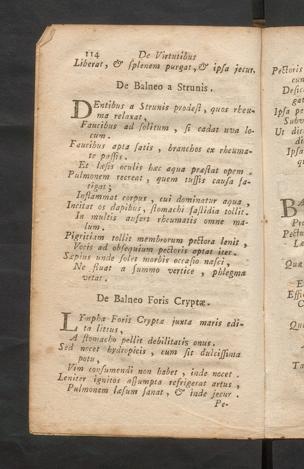 114 De Virtutibus
Liberat, & splenem purgat, & ipsa jecur.
De Balneo a Strunis.
DEntibus a Strunis prodest, quos rheu-
ma relaxat,
Faucibus ad solitum, si cadat uva lo-
cum.
Faucibus apta satis, branchos ex rheuma-
te passis.
Et læsis oculis hæc aqua præstat opem.
Pulmonem recreat, quem tussis causa fa-
tigat;
Inflammat corpus, cui dominatur aqua.
Incitat os dapibus, stomachi fastidia tollit.
In multis aufert rheumatis omne ma-
lum.
Pigritiam tollit membrorum pectora lenit,
Vocis ad obsequium pectoris aptat iter.
Sapius unde solet morbis occasio nasci,
Ne fluat a summo vertice, phlegma
vetat.
De Balneo Foris Cryptæ.
LYmpha Foris Cryptæ juxta maris edi-
ta littus,
A stomacho pellit debilitatis onus.
Sed nocet hydropicis, cum sit dulcissima
potu,
Vim consumendi non habet, inde nocet.
Leniter ignitos assumpta refrigerat artus,
Pulmonem læsum sanat, & inde jecur.
Pe-
Pectoris